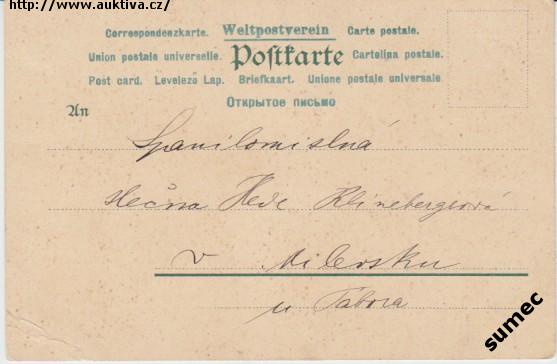 http://www.auktiva.cz/
Correspondenzkarte. Weltpostverein Carte postale.
Union postale universelle. Postkarte Cartolina postale.
Post card. Levelező Lap. Briefkaart. Unione postale universale.
Открытое письмо
An
Spanilomislná
slečna Hede Klinebergrová
v Milevsku
u Tábora
sumec